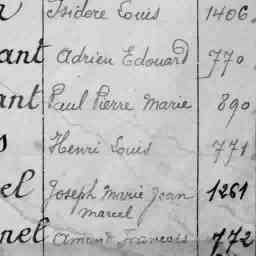 Isidore Louis 1406
ant Adrien Edouard 770
ant Paul Pierre Marie 890
Henri Louis 771
el Joseph Marie Jean 1261
Marcel
nel Amand Francois 772